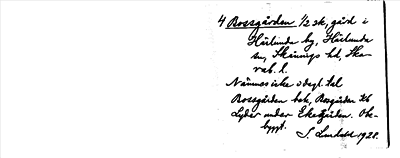 4 Bossgården 1/2 sk, gård i
Härlunda by, Härlunda
sn, Skånings hd, Ska-
rab. l.
Nämnes icke i dagl. tal
Bossgården bok, Bosgården Kb
Lyder under Ekegården. Obe-
byggt.
1928.